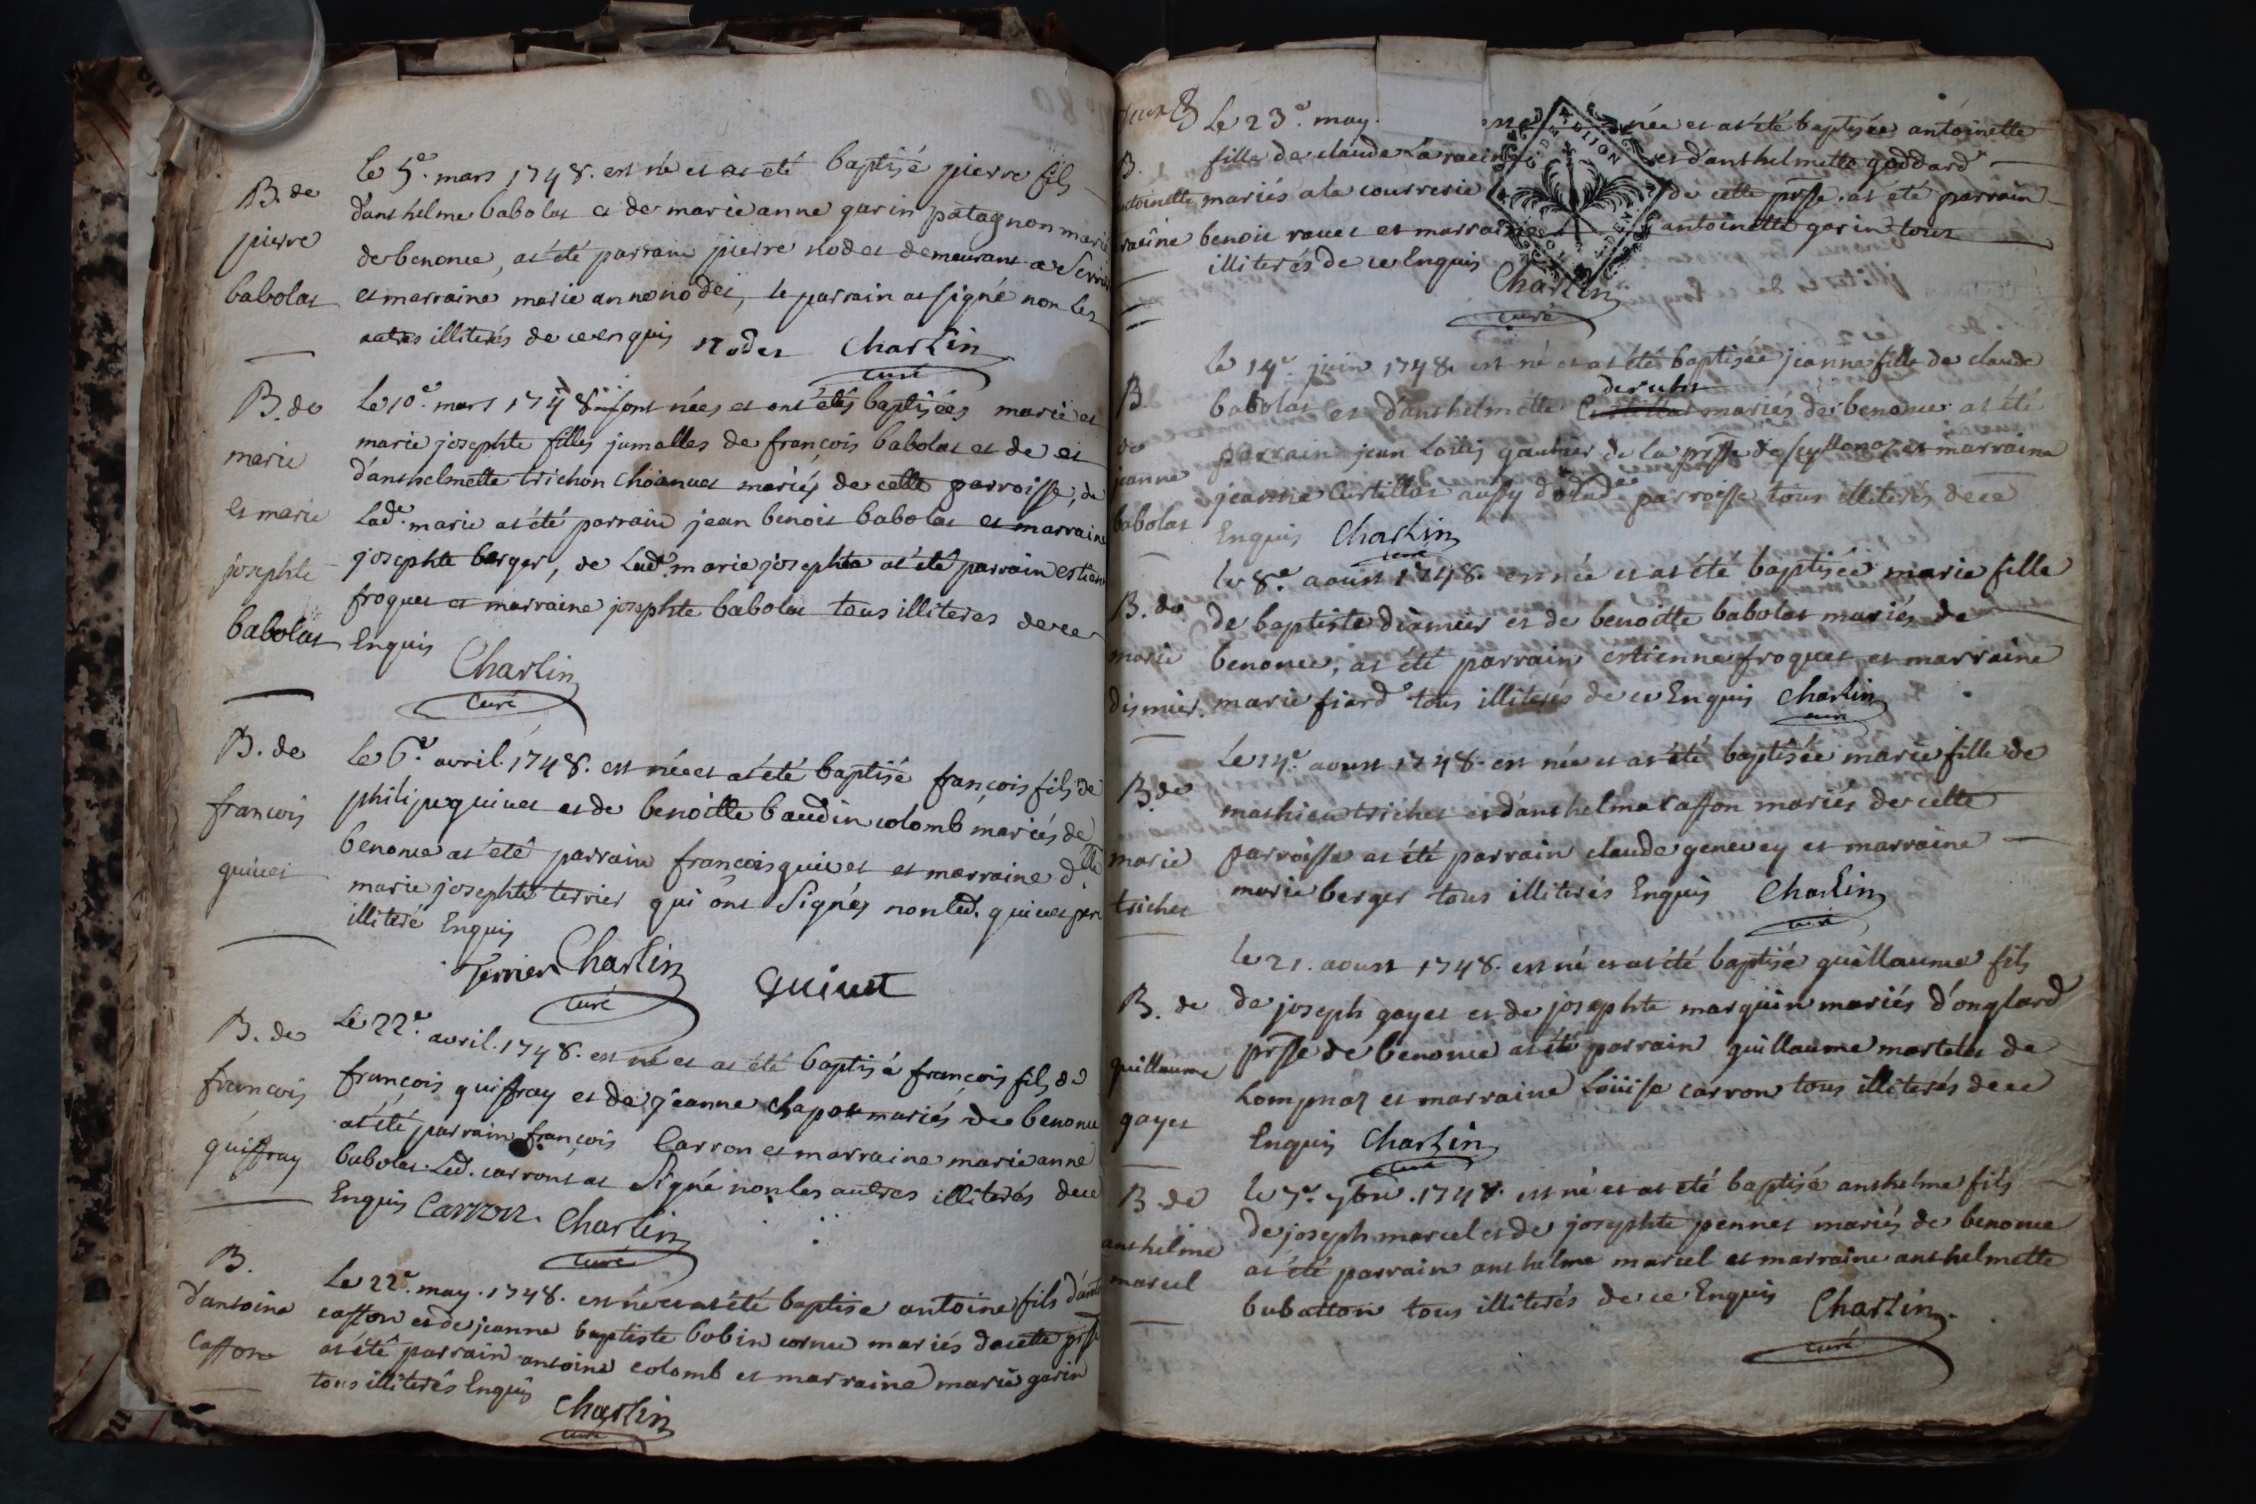 B. de
pierre
babolat
le 5e. mars 1748. est né et at été baptisé pierre fils
d'anthelme babolat et de marie anne garin patagnon mariés
de benonce, at été parrain pierre nodet demeurant a Serri
et marraine marie anne nodet, le parrain at signé non les
autres illiterés de ce enquis nodet Charlin
curé
B. de
marie
et marie
josephte
babolat
Le 10e. mars 1748 sont nées et ont étés baptisées marie et
marie josephte filles jumelles de françois babolat et de
d'anthelmette trichon choanet mariés de cette parroisse, de
Lade. marie at été parrain jean benoit babolat et marraine
josephte berger, de Lade. marie josephte at été parrain estienne
froquet et marraine josephte babolat tous illiteres de ce
Enquis
Charlin
curé
B. de
françois
quinet
Le 6e. avril. 1748. est né et at été baptisé françois fils de
philipe quinet et de benoitte baudin colomb mariés de
benonce at été parrain françois quinet et marraine d.lle
marie josephte terrier qui ont Signés non led. quinet pere
illiteré Enquis
Terrier Charlin quinet
curé
B. de
francois
quiffray
Le 22e. avril. 1748. est né et at été baptisé françois fils de
françois quiffray et de jeanne chapot mariés de benonce
at été parrain françois Carron et marraine marie anne
babolat. Led. carront at Signé non les autres illiterés de ce
Enquis Carron. Charlin
curé
B.
d'antoine
Caffon
Le 22e. may. 1748. est né et at été baptisé antoine fils d'ant
caffon et de jeanne baptiste bobin cornu mariés de cette prsse
at été parrain antoine colomb et marraine marie garin
tous illiterés Enquis
Charlin
curé
B.
antoinette
racine
Le 23e. may. née et at été baptisée antoinette
fille de claude Laracine et d'anthelmette goddard
mariés a la courrerie de cette prsse. at été parrain
benoit ravet et marraine antoinette garin tous
illiterés de ce Enquis
Charlin
curé
B
de
jeanne
babolat
le 14e. juin 1748. est né et at été baptisée jeanne fille de claude
derubt
babolat et d'anthelmette Curtillat mariés de benonce at été
parrain jean Loüis gautier de la prsse de seyllonaz et marraine
jeanne Curtillat aussy dud. parroisse tous illiterés de ce
Enquis Charlin
curé
B. de
marie
dismier
le 8e. aoust 1748. est née et at été baptisée marie fille
de baptiste dismier et de benoitte babolat mariés de
benonce, at été parrain estienne froquet et marraine
marie fiard tous illiterés de ce Enquis Charlin
curé
B. de
marie
trichet
Le 14e. aoust 1748. est née et at été baptisée marie fille de
mathieu trichet et d'anthelma Caffon mariés de cette
parroisse at été parrain claude genevey et marraine
marie berger tous illiterés Enquis Charlin
curé
B. de
guillaume
gayet
le 21. aoust 1748. est né et at été baptisé guillaume fils
de joseph gayet et de josephte marguin mariés d'onglard
prsse de benonce at été parrain guillaume martelet de
Lompnaz et marraine Loüise carron tous illiterés de ce
Enquis Charlin
curé
B de
anthelme
marcel
le 7e. 7bre. 1748. est né et at été baptisé anthelme fils
de joseph marcel et de josephte pennet mariés de benonce
at été parrain anthelme marcel et marraine anthelmette
bubatton tous illiterés de ce Enquis Charlin.
curé